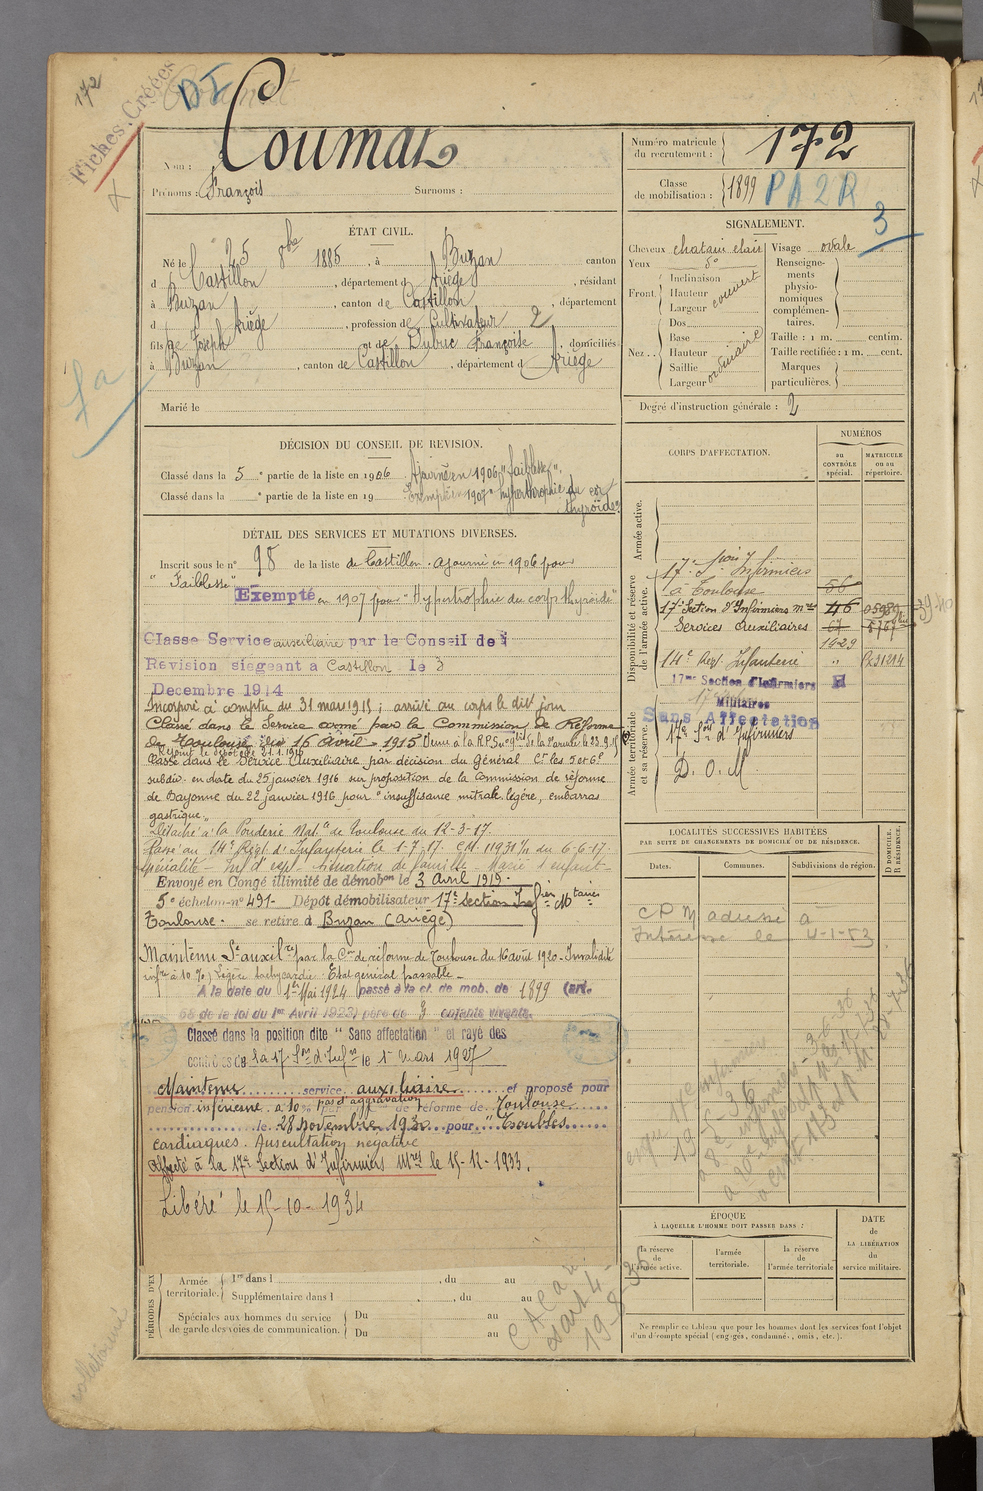 172
Fiches Créées
DI
Nom : Coumat
Prénoms : François Surnoms :
Numéro matricule du recrutement : 172
Classe de mobilisation : 1899 PA2R
3
ÉTAT CIVIL.
Né le 25 8bre 1885, à Buzan canton
d Castillon, département d Ariège, résidant
à Buzan, canton de Castillon, département
d Ariège, profession de Cultivateur 2
fils de Joseph et de Dubuc Françoise, domiciliés
à Buzan, canton de Castillon, département d Ariège
Marié le
SIGNALEMENT.
Cheveux chatain clair Visage ovale
Yeux do
Front. Inclinaison Hauteur Largeur couvert
Nez. Dos Base Hauteur Saillie Largeur ordinaire
Renseignements physionomiques complémentaires.
Taille : 1 m. centim.
Taille rectifiée : 1 m. cent.
Marques particulières.
Degré d'instruction générale : 2
DÉCISION DU CONSEIL DE REVISION.
Classé dans la 5e partie de la liste en 1906 Ajourné en 1906 "faiblesse".
Classé dans la e partie de la liste en 19 Exempté en 1907 "hypertrophie du corps thyroïde"
DÉTAIL DES SERVICES ET MUTATIONS DIVERSES.
Inscrit sous le n° 98 de la liste de Castillon. Ajourné en 1906 pour
"Faiblesse"
Exempté en 1907 pour "Hypertrophie du corps thyroïde"
Classe Service auxiliaire par le Conseil de
Révision siégeant à Castillon le 3
Decembre 1914
Incorporé à compter du 31 mars 1915 ; arrivé au corps le dit jour
Classé dans le Service armé par la Commission de Réforme
de Toulouse du 16 avril 1915
Rejoint le dépôt le 21.1.1916
Classé dans le Service Auxiliaire par décision du Général Ct les 5 et 6e
subdiv. en date du 25 janvier 1916 sur proposition de la Commission de réforme
de Bayonne du 22 janvier 1916 pour "insuffisance mitrale légère, embarras
gastrique"
Détaché à la Poudrerie Natle de Toulouse du 12-3-17.
Passé au 14e Régt d'Infanterie le 1-7-17. CM. 11931 1/11 du 6-6-17.
Envoyé en Congé illimité de démobon le 3 Avril 1919.
5e échelon n° 491- Dépôt démobilisateur 17e Section Infiers Mtaires
Toulouse. se retire à Buzan (Ariège)
Maintenu Sce auxilre par la Con de réforme de Toulouse du 16 avril 1920 - Invalidité
infre à 10 %) Légère tachycardie. Etat général passable -
A la date du 1er Mai 1924 passé à la cl. de mob. de 1899 (art.
58 de la loi du 1er Avril 1923) père de 3 enfants vivants.
Classé dans la position dite "Sans affectation" et rayé des
contrôles de la 17e Son d'Infrs le 1er mars 1927
Maintenu service auxiliaire et proposé pour
pension inférieure à 10 % pas d'aggravation de réforme de Toulouse
le 28 novembre 1930 pour "Troubles
cardiaques. Auscultation négative
Affecté à la 17e Section d'Infirmiers Mres le 15-12-1933.
Libéré le 15-10-1934
CORPS D'AFFECTATION.
NUMÉROS
au CONTRÔLE spécial.
MATRICULE ou au répertoire.
Armée active.
Disponibilité et réserve de l'armée active.
17e Son Infirmiers
à Toulouse 56
17e Section d'Infirmiers mres 46
Services Auxiliaires 67
1429
14e Reg. Infanterie "
17me Section d'Infirmiers
Militaires
Sans Affectation
Armée territoriale et sa réserve.
17e Son d'Infirmiers
D. O. M.
LOCALITÉS SUCCESSIVES HABITÉES
PAR SUITE DE CHANGEMENTS DE DOMICILE OU DE RÉSIDENCE.
D DOMICILE. R RÉSIDENCE.
Dates. Communes. Subdivisions de région.
CPM adressé a
Interesse le 4-1-53
ÉPOQUE
À LAQUELLE L'HOMME DOIT PASSER DANS :
la réserve de l'armée active.
l'armée territoriale.
la réserve de l'armée territoriale.
DATE de LA LIBÉRATION du service militaire.
PÉRIODES D'EX
Armée territoriale. 1re dans l , du au
Supplémentaire dans l , du au
Spéciales aux hommes du service de garde des voies de communication. Du au
Du au
Ne remplir ce tableau que pour les hommes dont les services font l'objet
d'un décompte spécial (engagés, condamnés, omis, etc.).